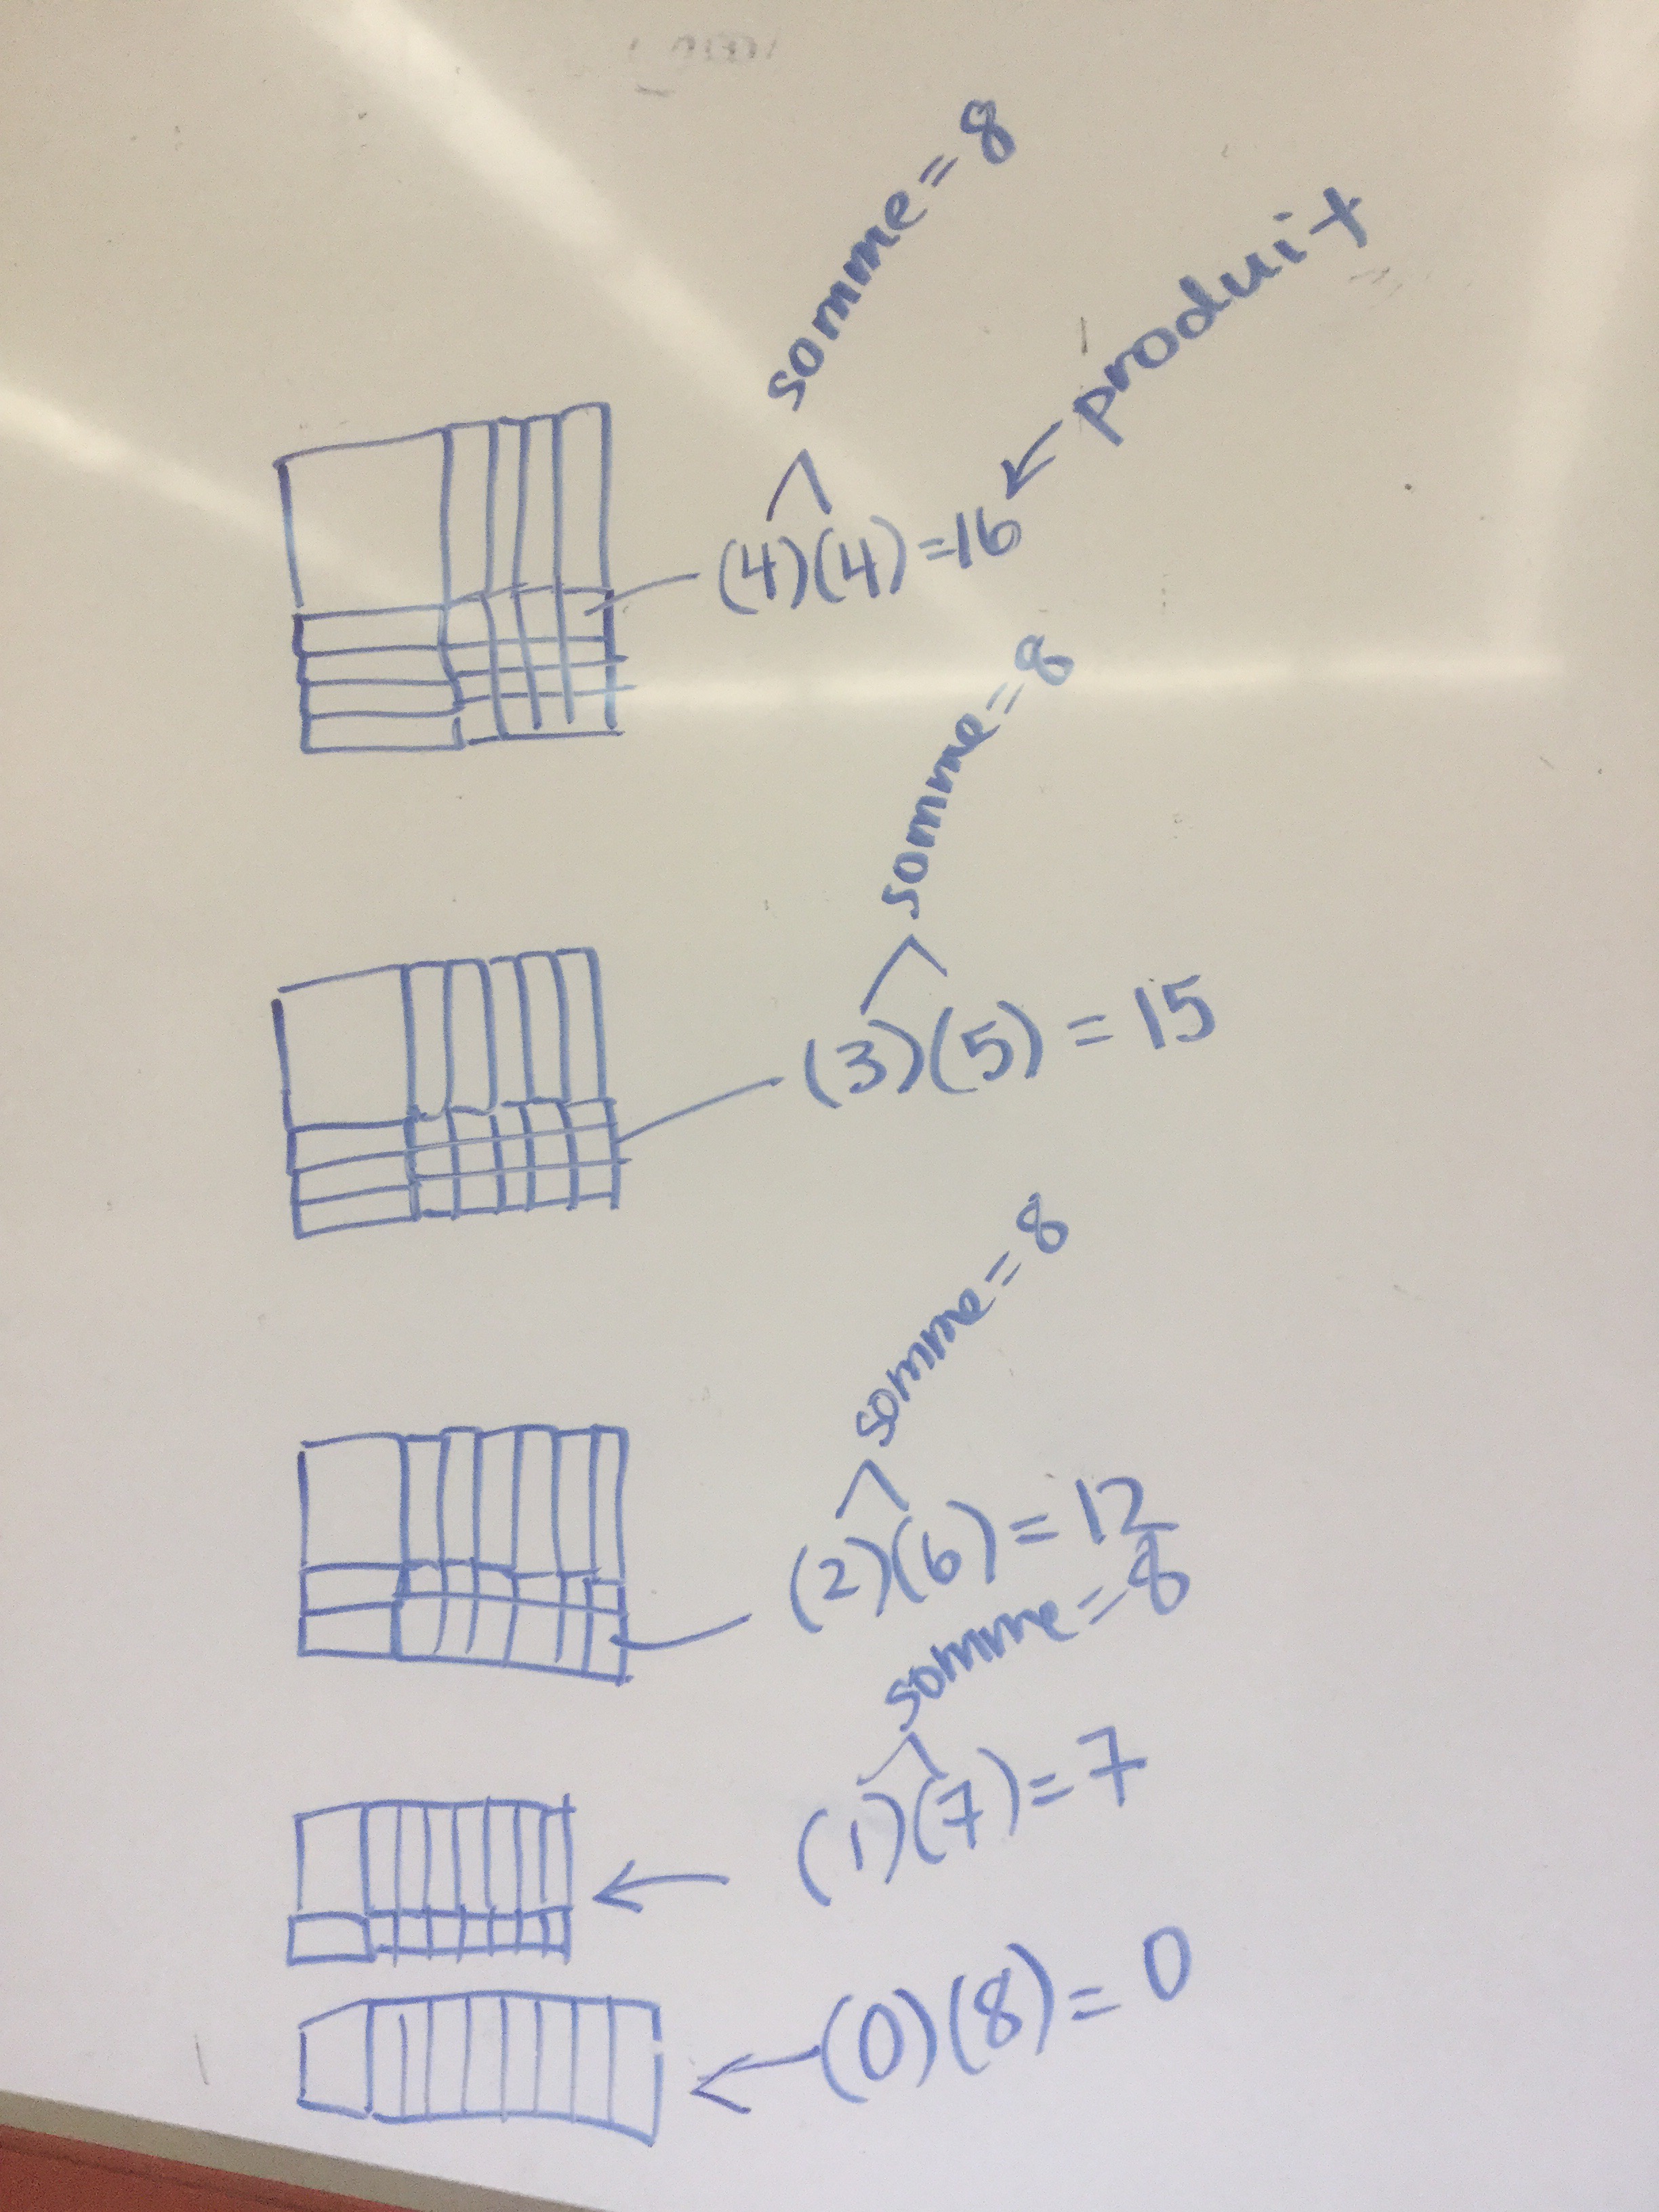 somme = 8
produit
(4)(4) = 16
somme = 8
(3)(5) = 15
somme = 8
(2)(6) = 12
somme = 8
(1)(7) = 7
(0)(8) = 0